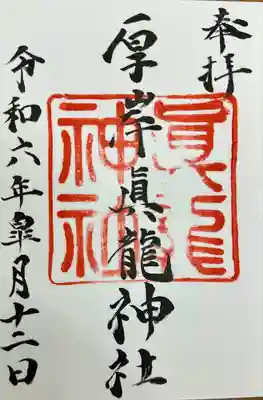 奉拝
厚岸眞龍神社
眞龍神社
令和六年皐月十二日